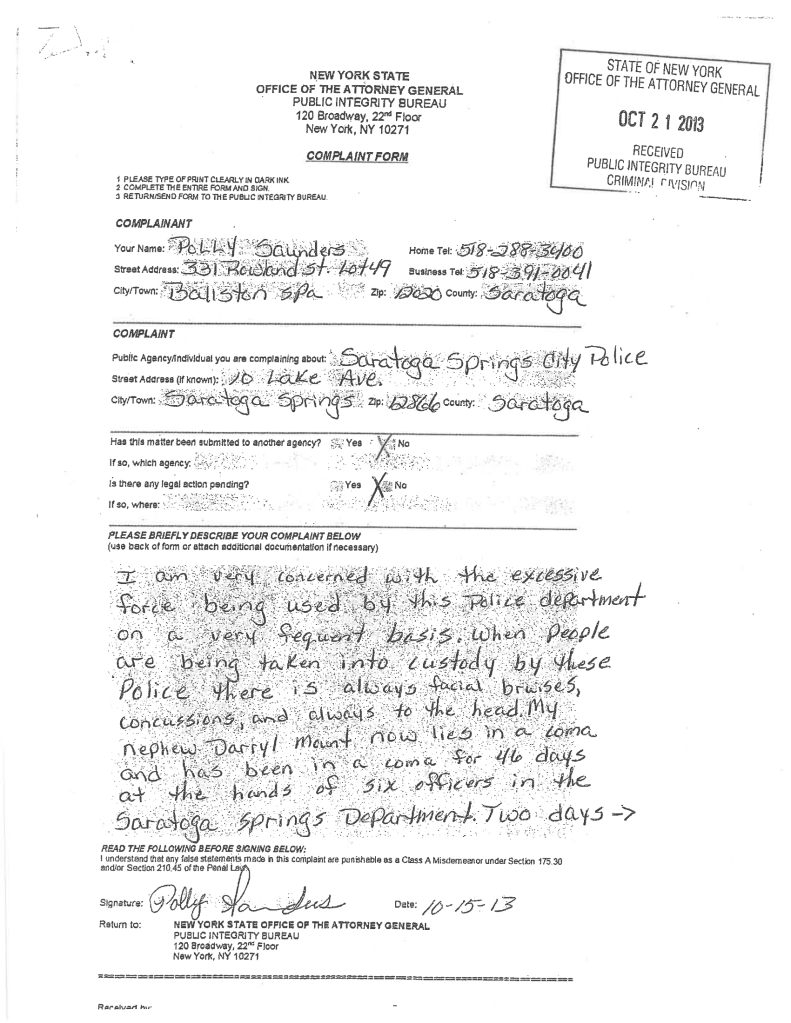 NEW YORK STATE
OFFICE OF THE ATTORNEY GENERAL
PUBLIC INTEGRITY BUREAU
120 Broadway, 22nd Floor
New York, NY 10271
COMPLAINT FORM
STATE OF NEW YORK
OFFICE OF THE ATTORNEY GENERAL
OCT 21 2013
RECEIVED
PUBLIC INTEGRITY BUREAU
CRIMINAL DIVISION
1 PLEASE TYPE OF PRINT CLEARLY IN DARK INK.
2 COMPLETE THE ENTIRE FORM AND SIGN.
3 RETURN/SEND FORM TO THE PUBLIC INTEGRITY BUREAU.
COMPLAINANT
Your Name: Polly Saunders Home Tel: 518-288-3400
Street Address: 331 Rowland St. Lot 49 Business Tel: 518-391-0041
City/Town: Ballston Spa Zip: 12020 County: Saratoga
COMPLAINT
Public Agency/Individual you are complaining about: Saratoga Springs City Police
Street Address (if known): Lake Ave.
City/Town: Saratoga Springs Zip: 12866 County: Saratoga
Has this matter been submitted to another agency? Yes X No
If so, which agency:
Is there any legal action pending? Yes X No
If so, where:
PLEASE BRIEFLY DESCRIBE YOUR COMPLAINT BELOW
(use back of form or attach additional documentation if necessary)
I am very concerned with the excessive
force being used by this Police department
on a very fequent basis. When People
are being taken into custody by these
Police there is always facial bruises,
concussions, and always to the head. My
nephew Darryl Mount now lies in a coma
and has been in a coma for 46 days
at the hands of six officers in the
Saratoga Springs Department. Two days ->
READ THE FOLLOWING BEFORE SIGNING BELOW:
I understand that any false statements made in this complaint are punishable as a Class A Misdemeanor under Section 175.30
and/or Section 210.45 of the Penal Law.
Signature: Polly Saunders Date: 10-15-13
Return to: NEW YORK STATE OFFICE OF THE ATTORNEY GENERAL
PUBLIC INTEGRITY BUREAU
120 Broadway, 22nd Floor
New York, NY 10271
Received by: